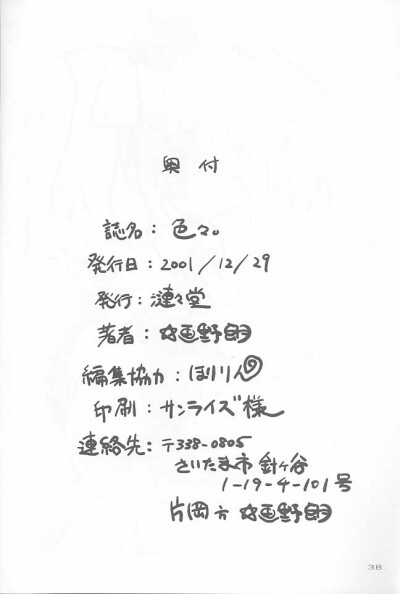 奥付
誌名：色々。
発行日：2001/12/29
発行：漣々堂
著者：女画野郎
編集協力：ほりりん
印刷：サンライズ様
連絡先：〒338-0805
さいたま市針ヶ谷
1-19-4-101号
片岡方 女画野郎
38